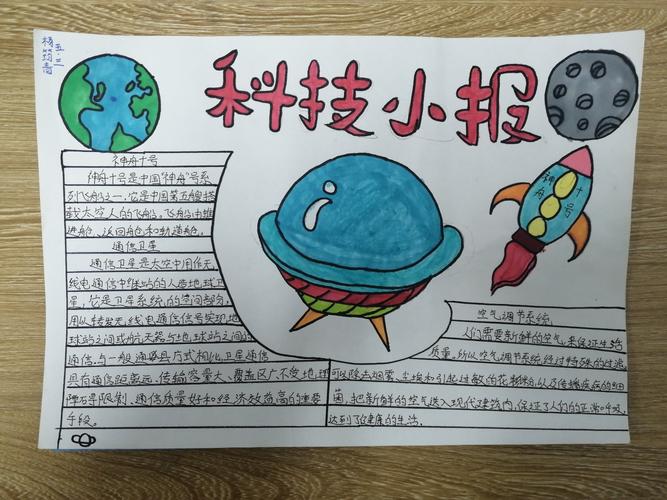 五·二
科技小报
神舟十号
神舟十号
神舟十号是中国"神舟"号系
列飞船之一,它是中国第五艘搭
载太空人的飞船。飞船由推
进舱、返回舱和轨道舱。
通信卫星
通信卫星是太空中用作无
线电通信中继站的人造地球卫
星,它是卫星系统的空间部分,
用以转发无线电通信信号实现地
球站之间或航天器与地球站之间的
通信与一般通
方式相比,卫星通信
具有通信距离远、传输容量大、覆盖区广不受地理
障碍限制、通信质量好和经济效益高的重要
手段。
空气调节系统
人们需要新鲜的空气来保证生活
质量,所以空气调节系统经过特殊的过滤,
可以除去烟雾、尘埃和引起过敏的花粉粒以及传播疾病的细
菌,把新鲜的空气送入现代建筑内,保证了人们的正常呼吸,
达到了健康的生活。